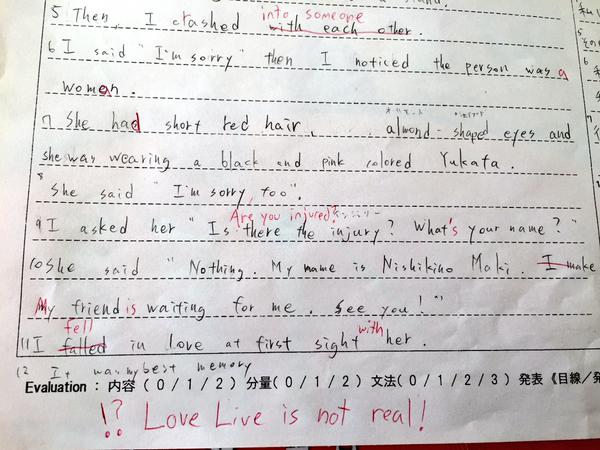 5 Then, I crashed with each other.
into someone
6 I said "I'm sorry" then I noticed the person was a
woman.
7 She had short red hair, almond-shaped eyes and
she was wearing a black and pink colored Yukata.
8 She said "I'm sorry, too".
Are you injured?
9 I asked her "Is there the injury? What's your name?"
10 She said "Nothing. My name is Nishikino Maki. I make
My friend is waiting for me. See you!"
fell with
11 I falled in love at first sight her.
12 It was my best memory
Evaluation : 内容 ( 0 / 1 / 2 ) 分量( 0 / 1 / 2 ) 文法( 0 / 1 / 2 / 3 ) 発表《目線/発
!? Love Live is not real!